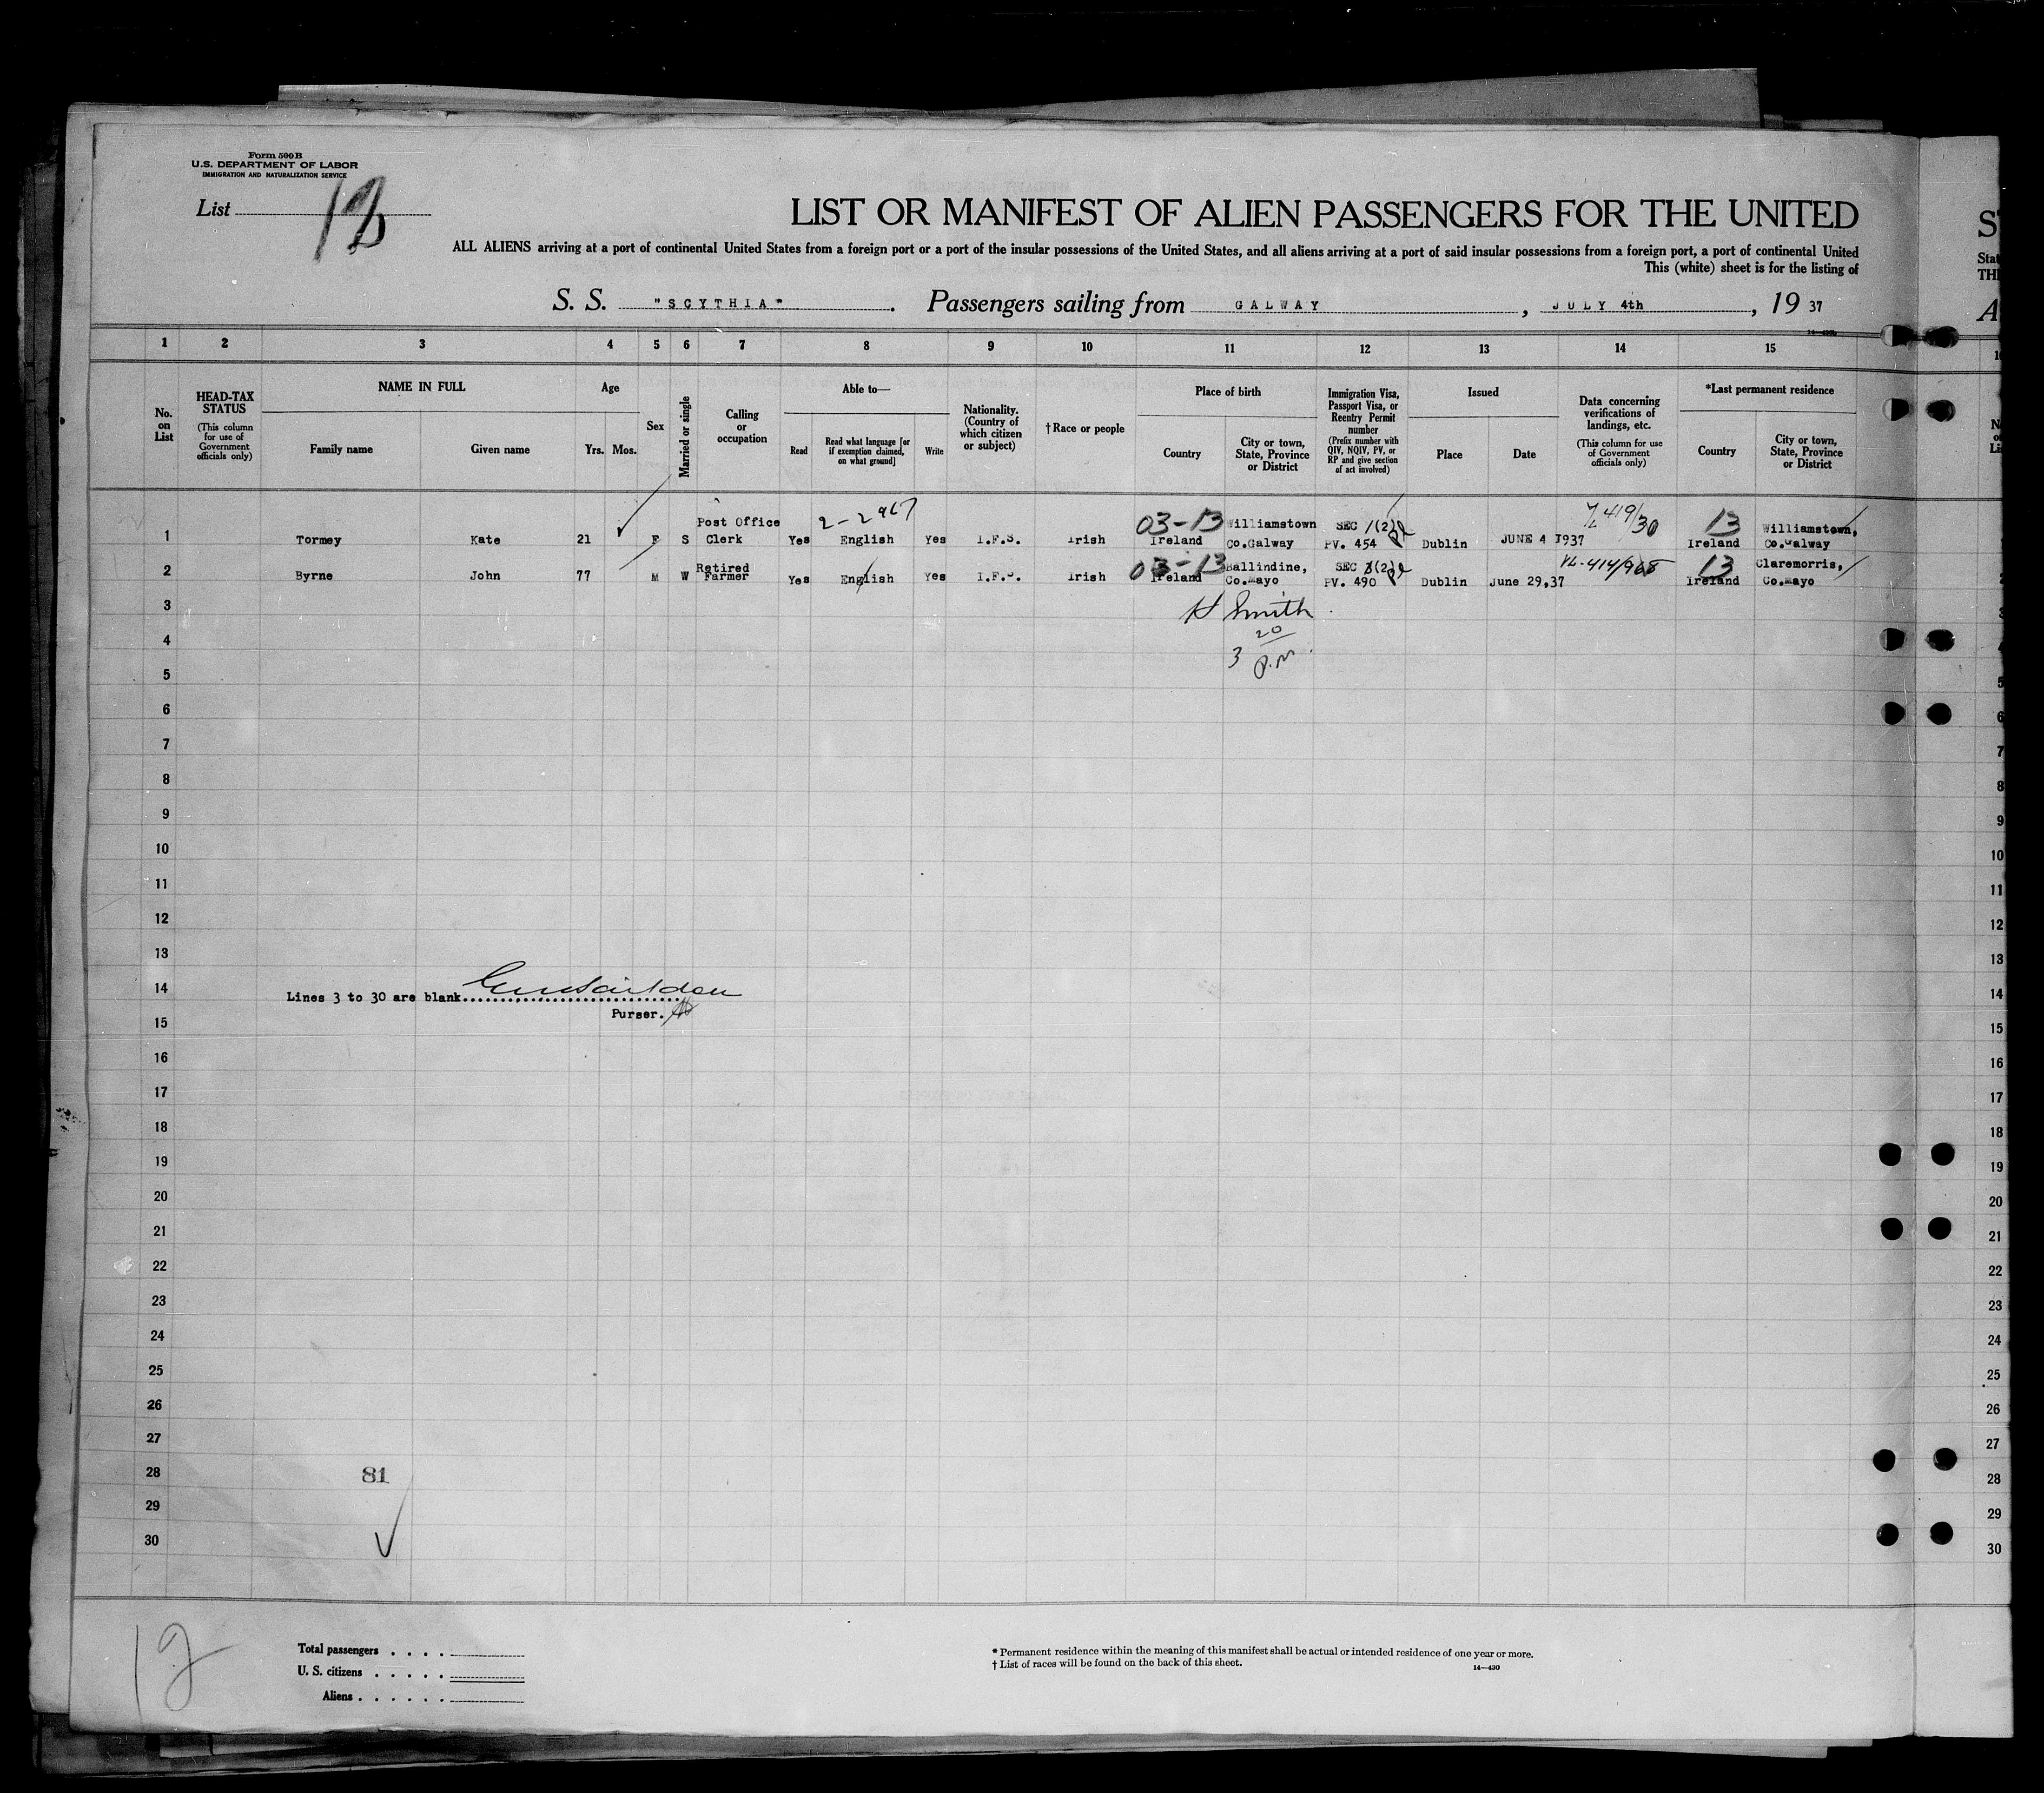 Form 500 B
U.S. DEPARTMENT OF LABOR
IMMIGRATION AND NATURALIZATION SERVICE
List 12
LIST OR MANIFEST OF ALIEN PASSENGERS FOR THE UNITED
ALL ALIENS arriving at a port of continental United States from a foreign port or a port of the insular possessions of the United States, and all aliens arriving at a port of said insular possessions from a foreign port, a port of continental United
This (white) sheet is for the listing of
S. S. "SCYTHIA". Passengers sailing from GALWAY, JULY 4th, 19 37
1 2 3 4 5 6 7 8 9 10 11 12 13 14 15
No. on List
HEAD-TAX STATUS
(This column for use of Government officials only)
NAME IN FULL
Family name
Given name
Age
Yrs. Mos.
Sex
Married or single
Calling or occupation
Able to—
Read
Read what language [or if exemption claimed, on what ground]
Write
Nationality. (Country of which citizen or subject)
†Race or people
Place of birth
Country
City or town, State, Province or District
Immigration Visa, Passport Visa, or Reentry Permit number
(Prefix number with QIV, NQIV, PV, or RP and give section of act involved)
Issued
Place
Date
Data concerning verifications of landings, etc.
(This column for use of Government officials only)
*Last permanent residence
Country
City or town, State, Province or District
2-2967
1 Tormey Kate 21 F S Post Office Clerk Yes English Yes I.F.S. Irish 03-13 Ireland Williamstown Co.Galway SEC 1(2) PV. 454 Dublin JUNE 4 1937 419/30 13 Ireland Williamstown, Co.Galway
2 Byrne John 77 M W Retired Farmer Yes English Yes I.F.S. Irish 03-13 Ireland Ballindine, Co.Mayo SEC (2) PV. 490 Dublin June 29,37 VL-414/968 13 Ireland Claremorris, Co.Mayo
3
H Smith
4
3 20 P.M.
5
6
7
8
9
10
11
12
13
14
Lines 3 to 30 are blank
Purser.
15
16
17
18
19
20
21
22
23
24
25
26
27
28
81
29
30
12
Total passengers
U. S. citizens
Aliens
* Permanent residence within the meaning of this manifest shall be actual or intended residence of one year or more.
† List of races will be found on the back of this sheet.
14—430